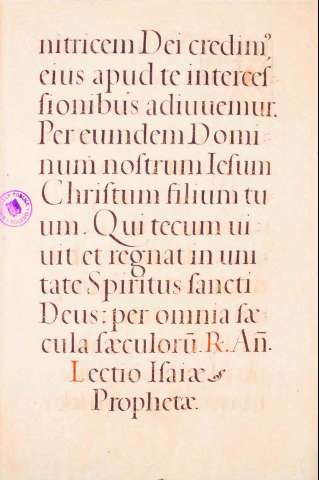 nitricem Dei credimꝰ
eius apud te interceſ
ſionibus adiuuemur.
Per eumdem Domi
num noſtrum Ieſum
Chriſtum filium tu
um. Qui tecum ui
uit et regnat in uni
tate Spiritus ſancti
Deus: per omnia ſæ
cula ſæculorū. R. Añ.
Lectio Iſaiæ
Prophetæ.